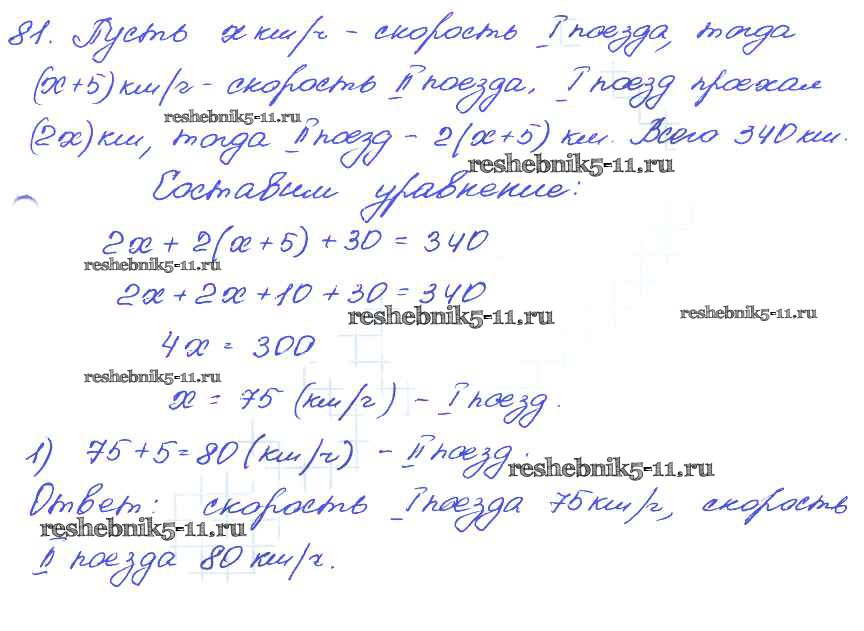 81. Пусть x км/ч - скорость I поезда, тогда
(x+5) км/ч - скорость II поезда. I поезд проехал
reshebnik5-11.ru
(2x) км, тогда II поезд - 2(x+5) км. Всего 340 км.
reshebnik5-11.ru
Составим уравнение:
2x + 2(x+5) + 30 = 340
reshebnik5-11.ru
2x + 2x + 10 + 30 = 340
reshebnik5-11.ru
reshebnik5-11.ru
4x = 300
reshebnik5-11.ru
x = 75 (км/ч) - I поезд.
1) 75 + 5 = 80 (км/ч) - II поезд.
reshebnik5-11.ru
Ответ: скорость I поезда 75 км/ч, скорость
reshebnik5-11.ru
II поезда 80 км/ч.